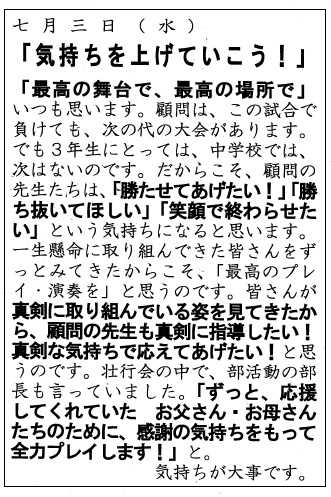 七月三日(水)
「気持ちを上げていこう!」
「最高の舞台で、最高の場所で」
いつも思います。顧問は、この試合で
負けても、次の代の大会があります。
でも3年生にとっては、中学校では、
次はないのです。だからこそ、顧問の
先生たちは、「勝たせてあげたい!」「勝
ち抜いてほしい」「笑顔で終わらせた
い」という気持ちになると思います。
一生懸命に取り組んできた皆さんをず
っとみてきたからこそ、「最高のプレ
イ・演奏を」と思うのです。皆さんが
真剣に取り組んでいる姿を見てきたか
ら、顧問の先生も真剣に指導したい!
真剣な気持ちで応えてあげたい!と思
うのです。壮行会の中で、部活動の部
長も言っていました。「ずっと、応援
してくれていた お父さん・お母さん
たちのために、感謝の気持ちをもって
全力プレイします!」と。
気持ちが大事です。